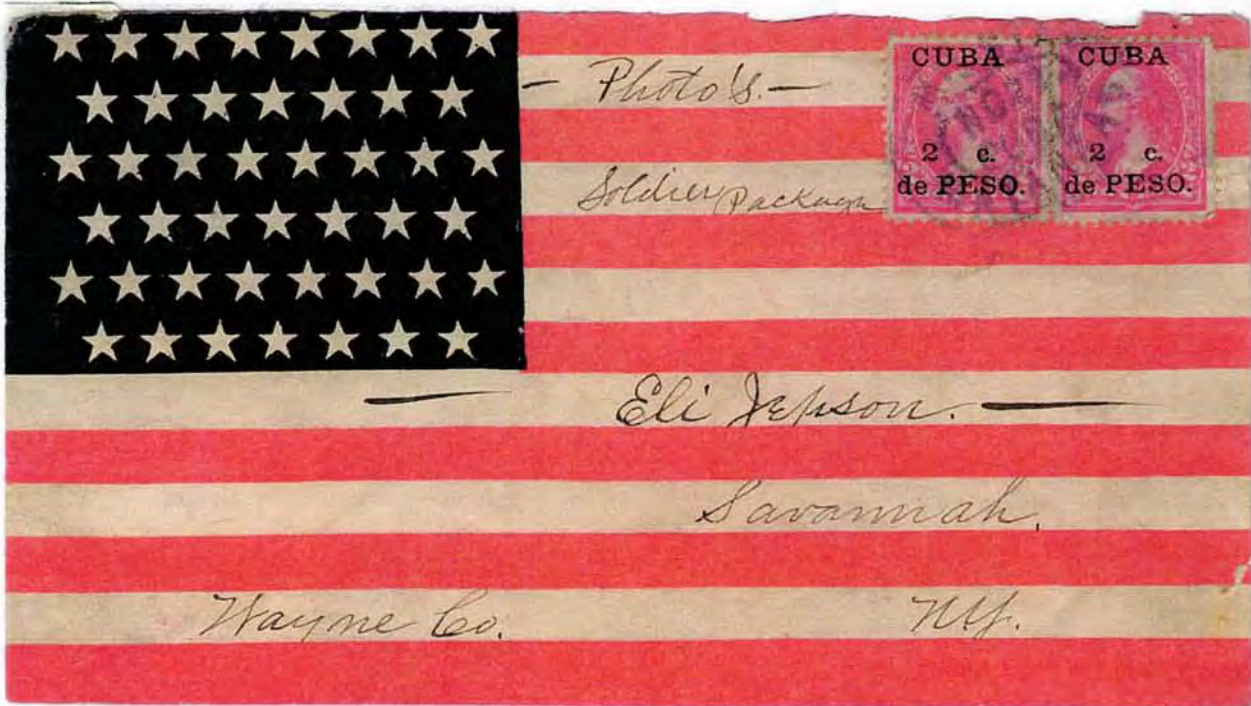 — Photo's. —
CUBA CUBA
2 c. 2 c.
de PESO. de PESO.
Soldier Package
— Eli Jepson. —
Savannah,
Wayne Co. NY.